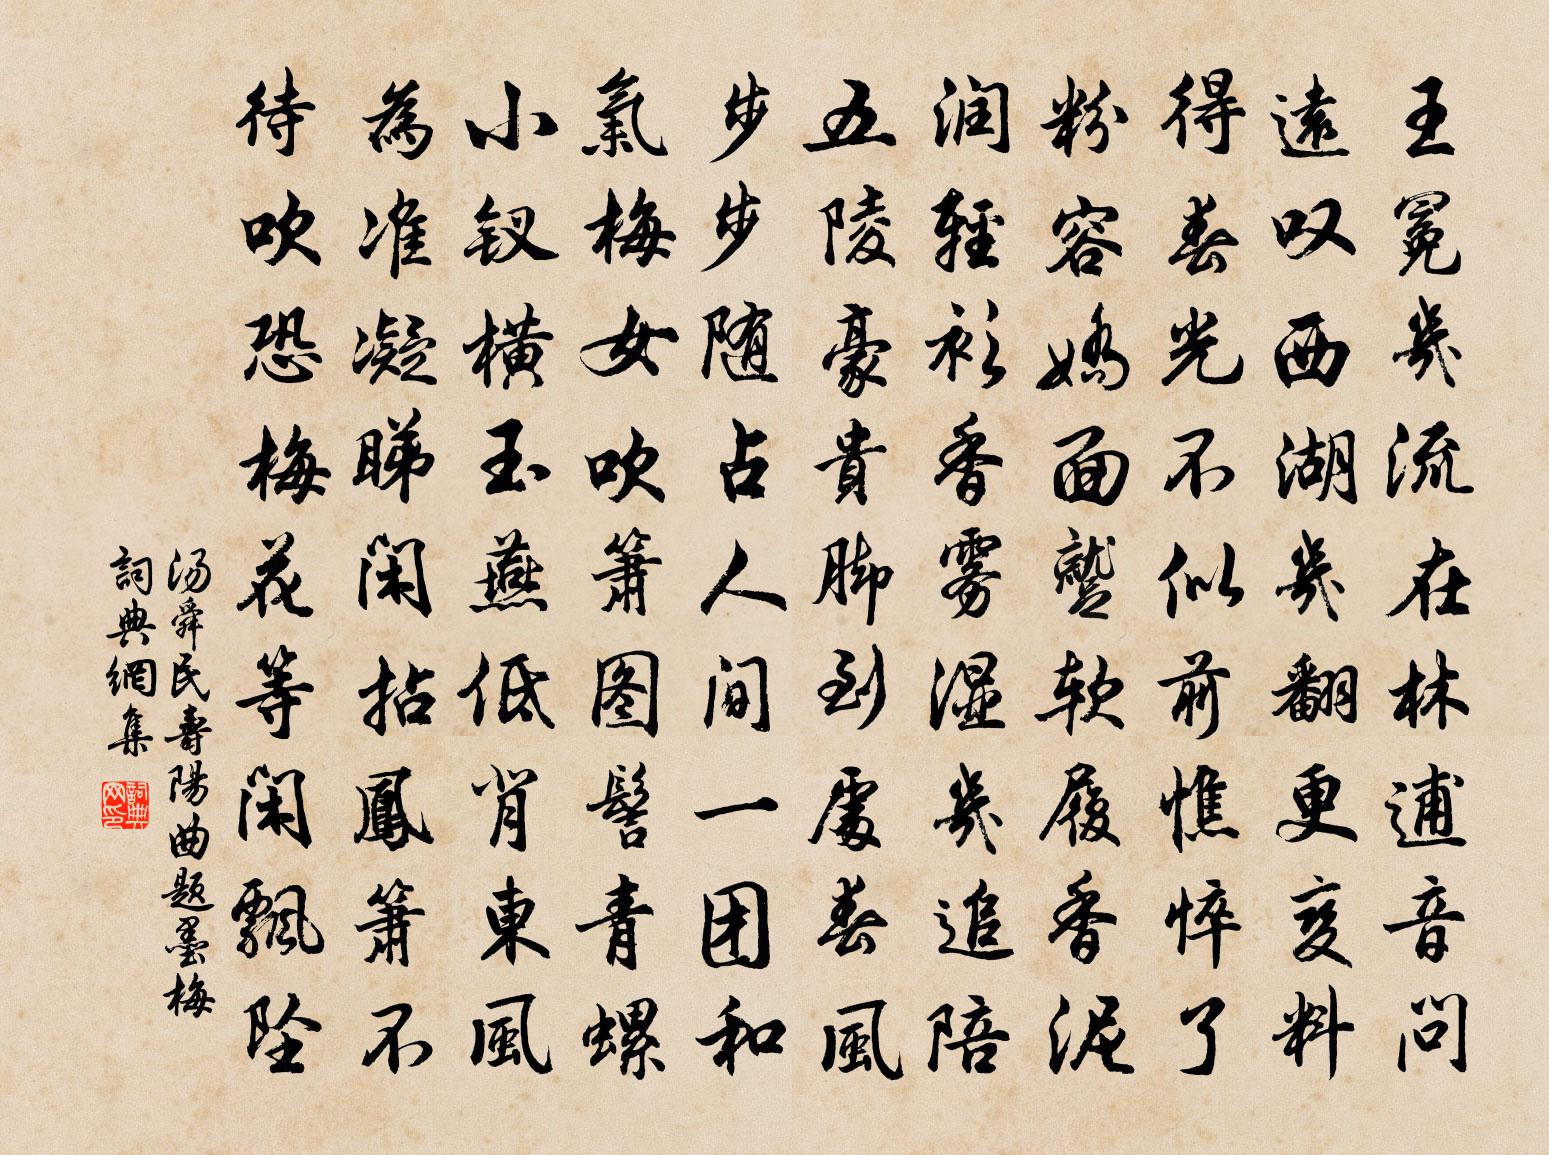 王冕幾流在林逋音問
遠叹西湖幾翻更变料
得春光不似前憔悴了
粉容嬌面软履香泥
润輕衫香雾湿幾追陪
五陵豪貴脚到處春風
步步随占人间一团和
氣梅女吹箫图髻青螺
小钗横玉燕低肖東風
為准凝睇闲拈鳳箫不
待吹恐梅花等闲飄坠
汤舜民壽陽曲题墨梅
詞典網集
詞典网印